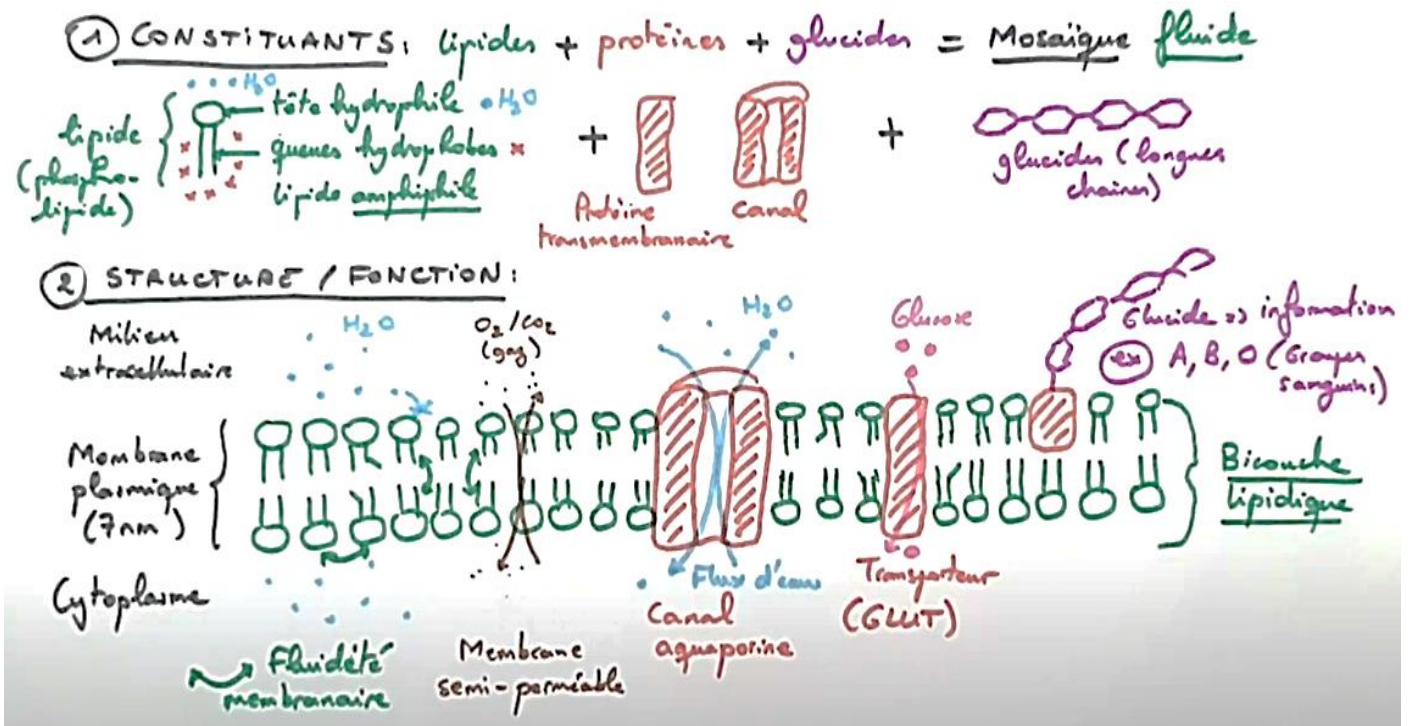 ① CONSTITUANTS: lipides + protéines + glucides = Mosaïque fluide
H₂O
tête hydrophile • H₂O
lipide
(phospho-
lipide)
queues hydrophobes ×
lipide amphiphile
+
Protéine
transmembranaire
Canal
+
glucides (longues
chaînes)
② STRUCTURE / FONCTION:
Milieu
extracellulaire
H₂O
O₂/CO₂
(gaz)
H₂O
Glucose
Glucide => information
ex A, B, O (Groupes
sanguins)
Membrane
plasmique
(7nm)
Bicouche
lipidique
Cytoplasme
Flux d'eau
Canal
aquaporine
Transporteur
(GLUT)
Fluidété
membranaire
Membrane
semi-perméable